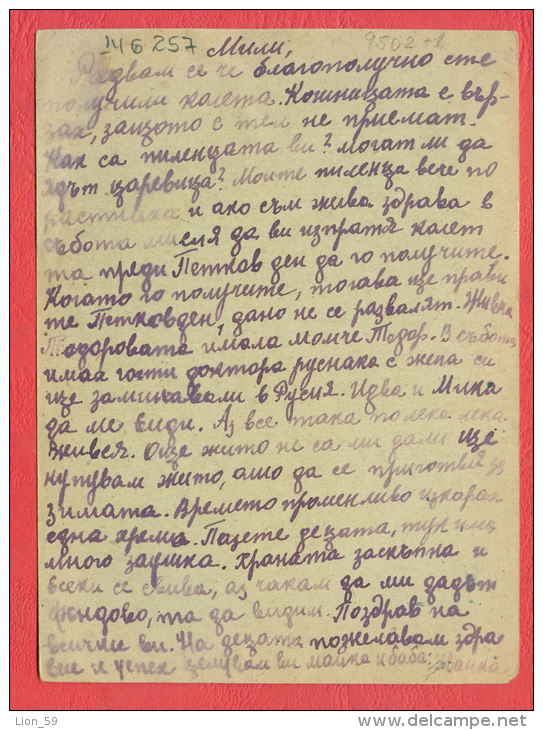 Ш 6 257
9502
Мили,
Радвам се че благополучно сте
получили колета. Кошницата е вър-
зах, защото с тел не приемат.
Как са пиленцата ви? могат ли да
ядът царевица? Моите пиленца вече по
растнаха и ако съм жива здрава в
събота мисля да ви изпратя колет
та преди Петков ден да го получите.
Когато го получите, тогава ще прави
те Петковден, дано не се развалят. Живка
Тодоровата имала момче Тодор. В събота
имаа гости доктора руснака с жена си
ще заминавали в Русия. Идва и Мика
да ме види. Аз все така полека лека
живея. Още жито не са ми дали ще
купувам жито, ашо да се приготвя за
зимата. Времето променливо изкарах
една хрема. Пазете децата, тук има
много заушка. Храната заскъпна и
всеки се свива, аз чакам да ми дадът
фондово, та да видим. Поздрав на
всички ви. На децата пожелавам здра
вие и успех целувам ви майка и баба:
Lion_59